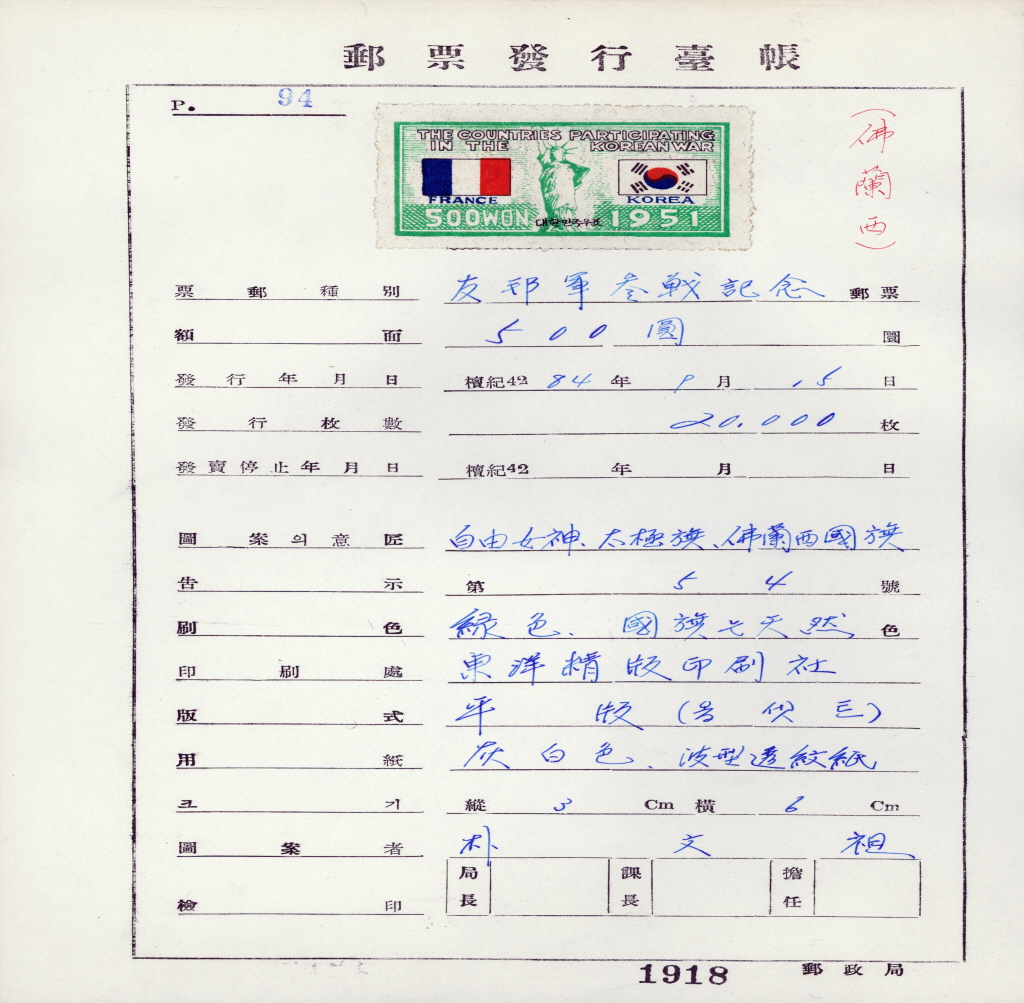 郵票發行臺帳
P. 94
THE COUNTRIES PARTICIPATING
IN THE KOREAN WAR
FRANCE KOREA
500WON 대한민국우표 1951
(佛蘭西)
票郵種別 友邦軍參戰記念 郵票
額面 500圓 圜
發行年月日 檀紀4284年9月15日
發行枚數 20.000枚
發賣停止年月日 檀紀42 年 月 日
圖案의意匠 自由女神、太極旗、佛蘭西國旗
告示 第54號
刷色 緑色、國旗는天然色
印刷處 東洋精版印刷社
版式 平版(옵셋트)
用紙 灰白色、波型透紋紙
크기 縱 3 Cm 橫 6 Cm
圖案者 朴文祖
檢印 局長 課長 擔任
1918 郵政局